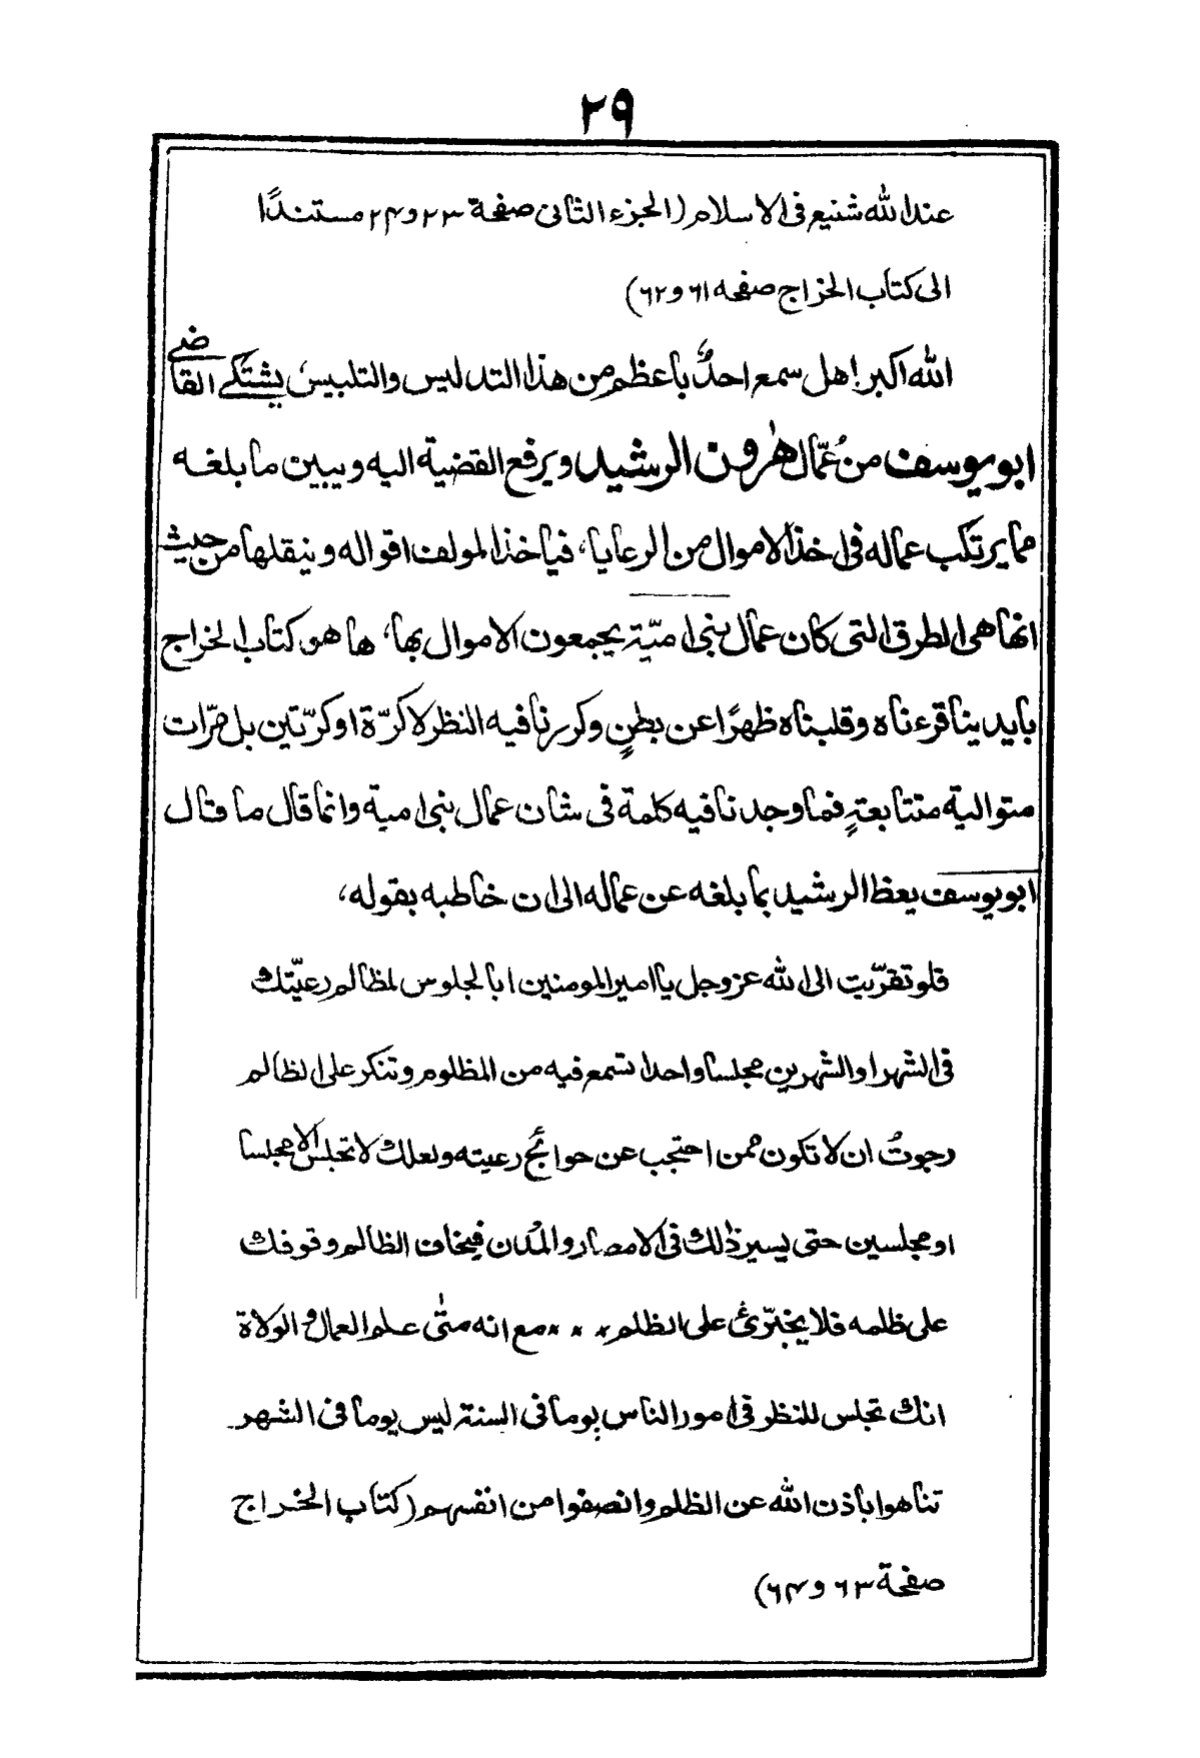 ۲۹
عند الله شنيع فى الاسلام (الجزء الثانى صفحة ۲۳ و ۲۴ مستندًا
الى كتاب الخراج صفحه ۶۱ و ۶۲)
الله اكبر! هل سمع احدٌ باعظم من هذا التدليس والتلبيس يشتكى القاضى
ابو يوسف من عُمّال هٰرون الرشيد ويرفع القضية اليه ويبين ما بلغه
مما يرتكب عماله فى اخذ الاموال من الرعايا، فيأخذ المولف اقواله وينقلها من حيث
انها هى الطرق التى كان عمال بنى اميّة يجمعون الاموال بها، ها هو كتاب الخراج
بايدينا قرءناه وقلبناه ظهرًا عن بطنٍ وكررنا فيه النظر لا كرّة او كرّتين بل مرّات
متوالية متتابعةٍ فما وجدنا فيه كلمة فى شان عمال بنى امية وانما قال ما قال
ابو يوسف يعظ الرشيد بما بلغه عن عماله الى ان خاطبه بقوله،
فلو تقرّبت الى الله عز وجل يا امير المومنين! بالجلوس لمظالم رعيّتك
فى الشهر او الشهرين مجلسا واحدا تسمع فيه من المظلوم وتنكر على الظالم
رجوتُ ان لا تكون ممن احتجب عن حوائج رعيته ولعلك لا تجلس الا مجلسا
او مجلسين حتى يسير ذٰلك فى الامصار والمُدن فيخاف الظالم وقوفك
على ظلمه فلا يجترئ على الظلم × × × مع انه متٰى علم العمال والولاة
انك تجلس للنظر فى امور الناس يوما فى السنة ليس يوما فى الشهر
تناهوا باذن الله عن الظلم وانصفوا من انفسهم (كتاب الخراج
صفحة ۶۳ و ۶۴)